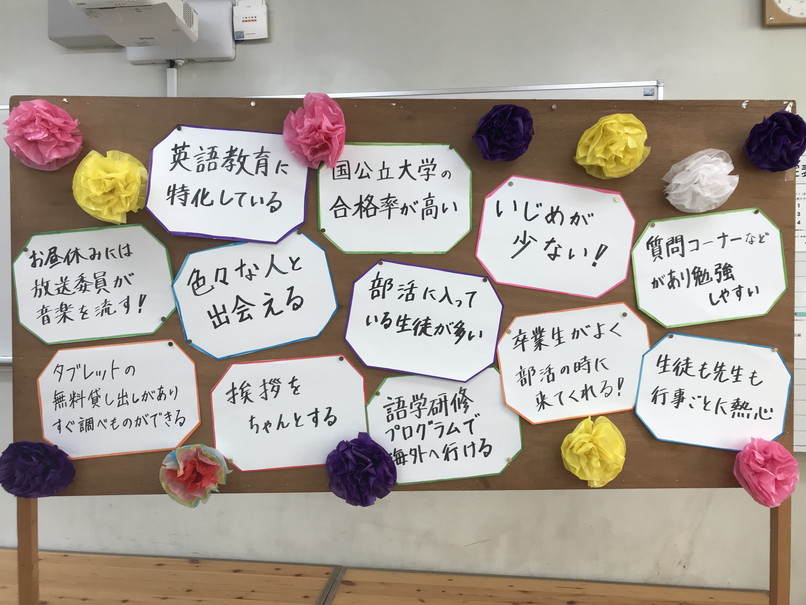 英語教育に
特化している
国公立大学の
合格率が高い
いじめが
少ない!
質問コーナーなど
があり勉強
しやすい
お昼休みには
放送委員が
音楽を流す!
色々な人と
出会える
部活に入って
いる生徒が多い
卒業生がよく
部活の時に
来てくれる!
生徒も先生も
行事ごとに熱心
タブレットの
無料貸し出しがあり
すぐ調べものができる
挨拶を
ちゃんとする
語学研修
プログラムで
海外へ行ける